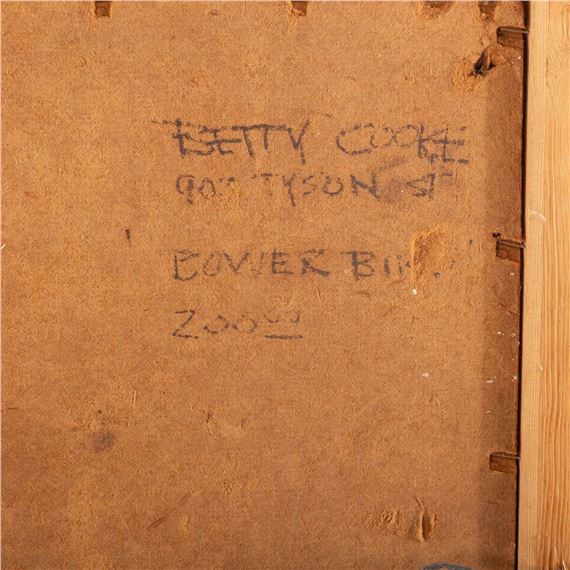 BETTY COOKE
TYSON ST
BOWER
200.00